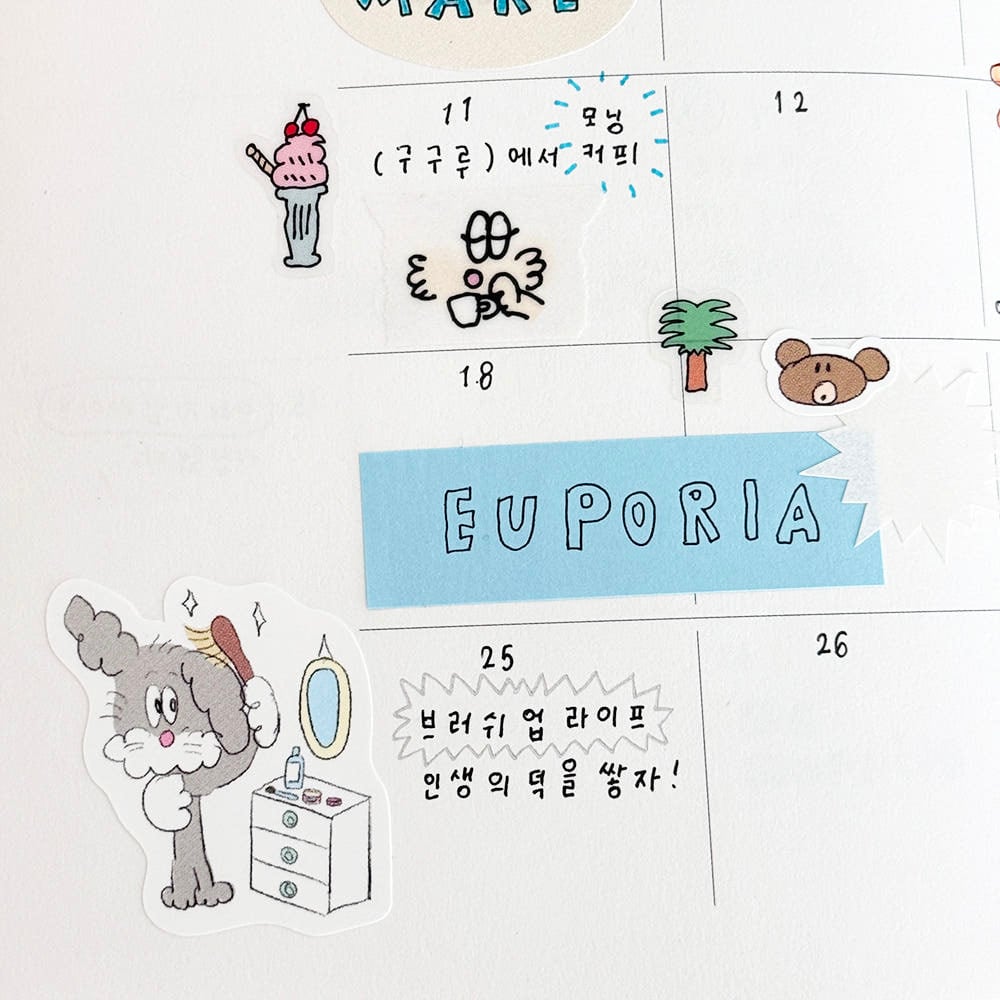 MAKE
11
모닝
(구구루)에서 커피
12
18
EUPORIA
25
26
브러쉬업 라이프
인생의 덕을 쌓자!